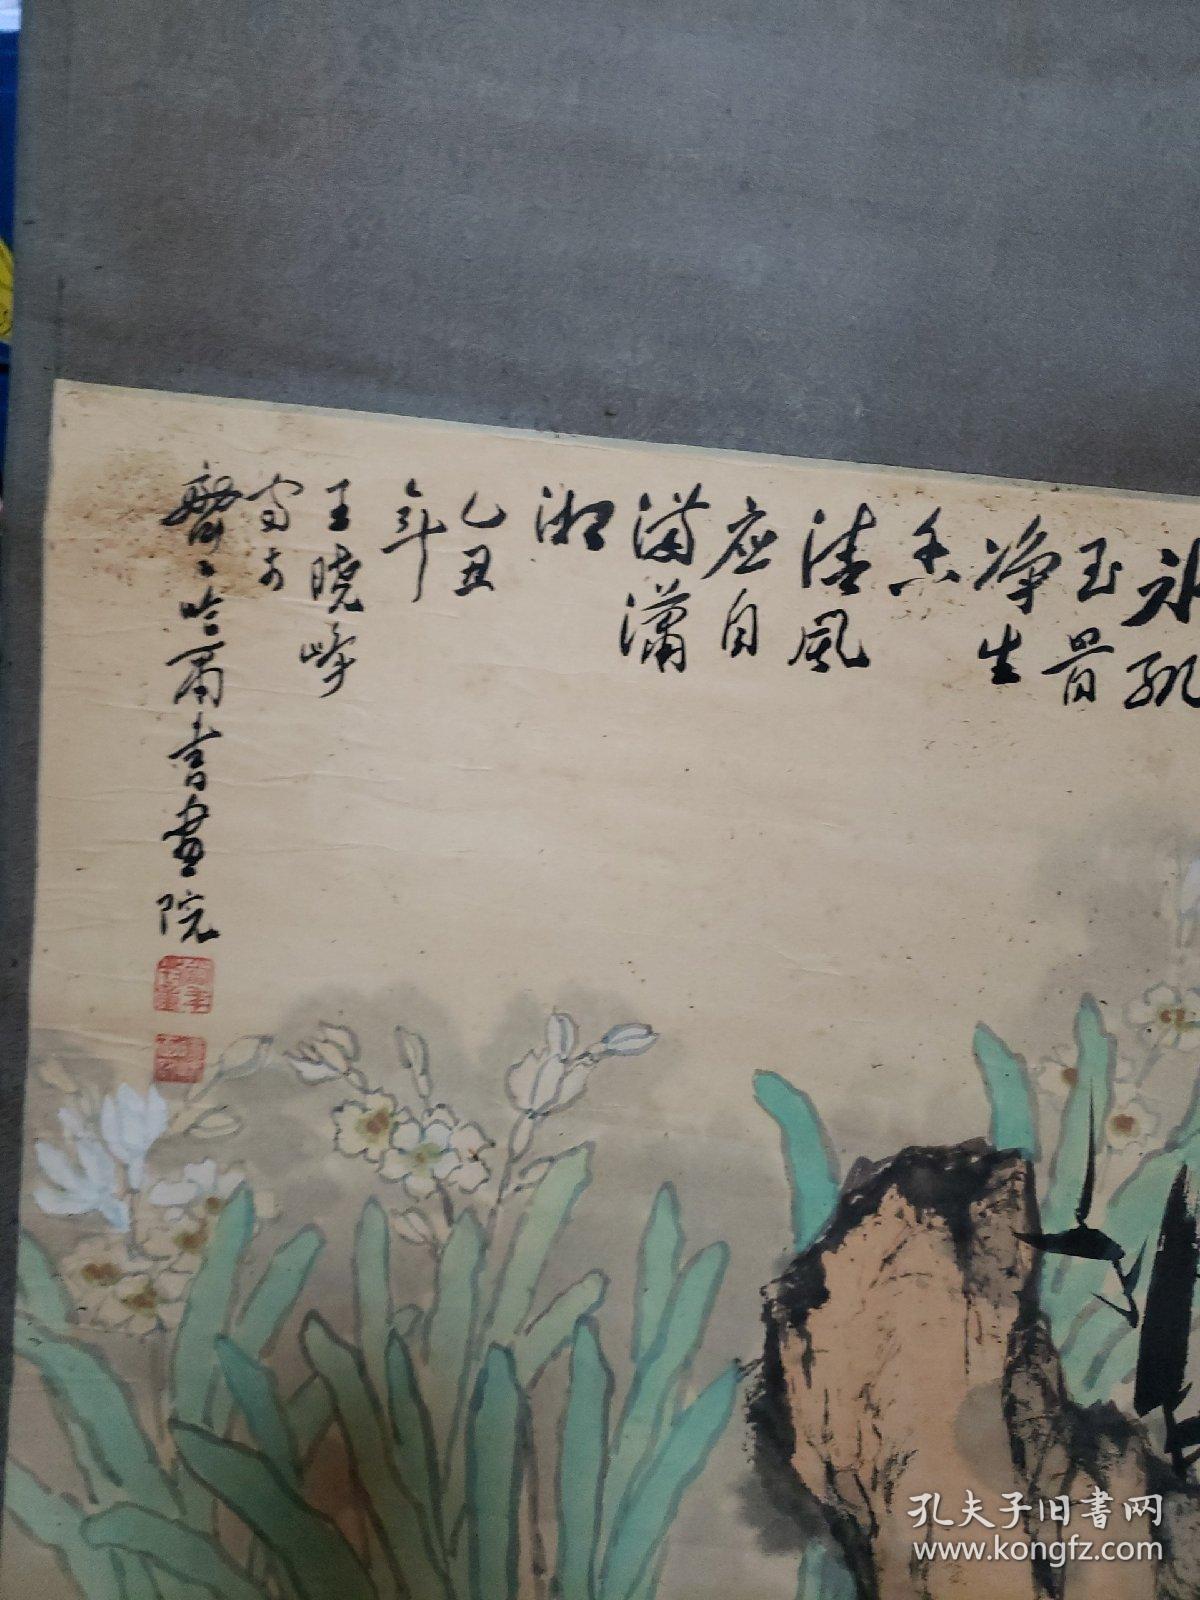 冰肌
玉骨
净生
香
清风
应自
满潇
湘
乙丑
年
王晓峰
写于
齐〻哈尔书画院
孔夫子旧书网
www.kongfz.com